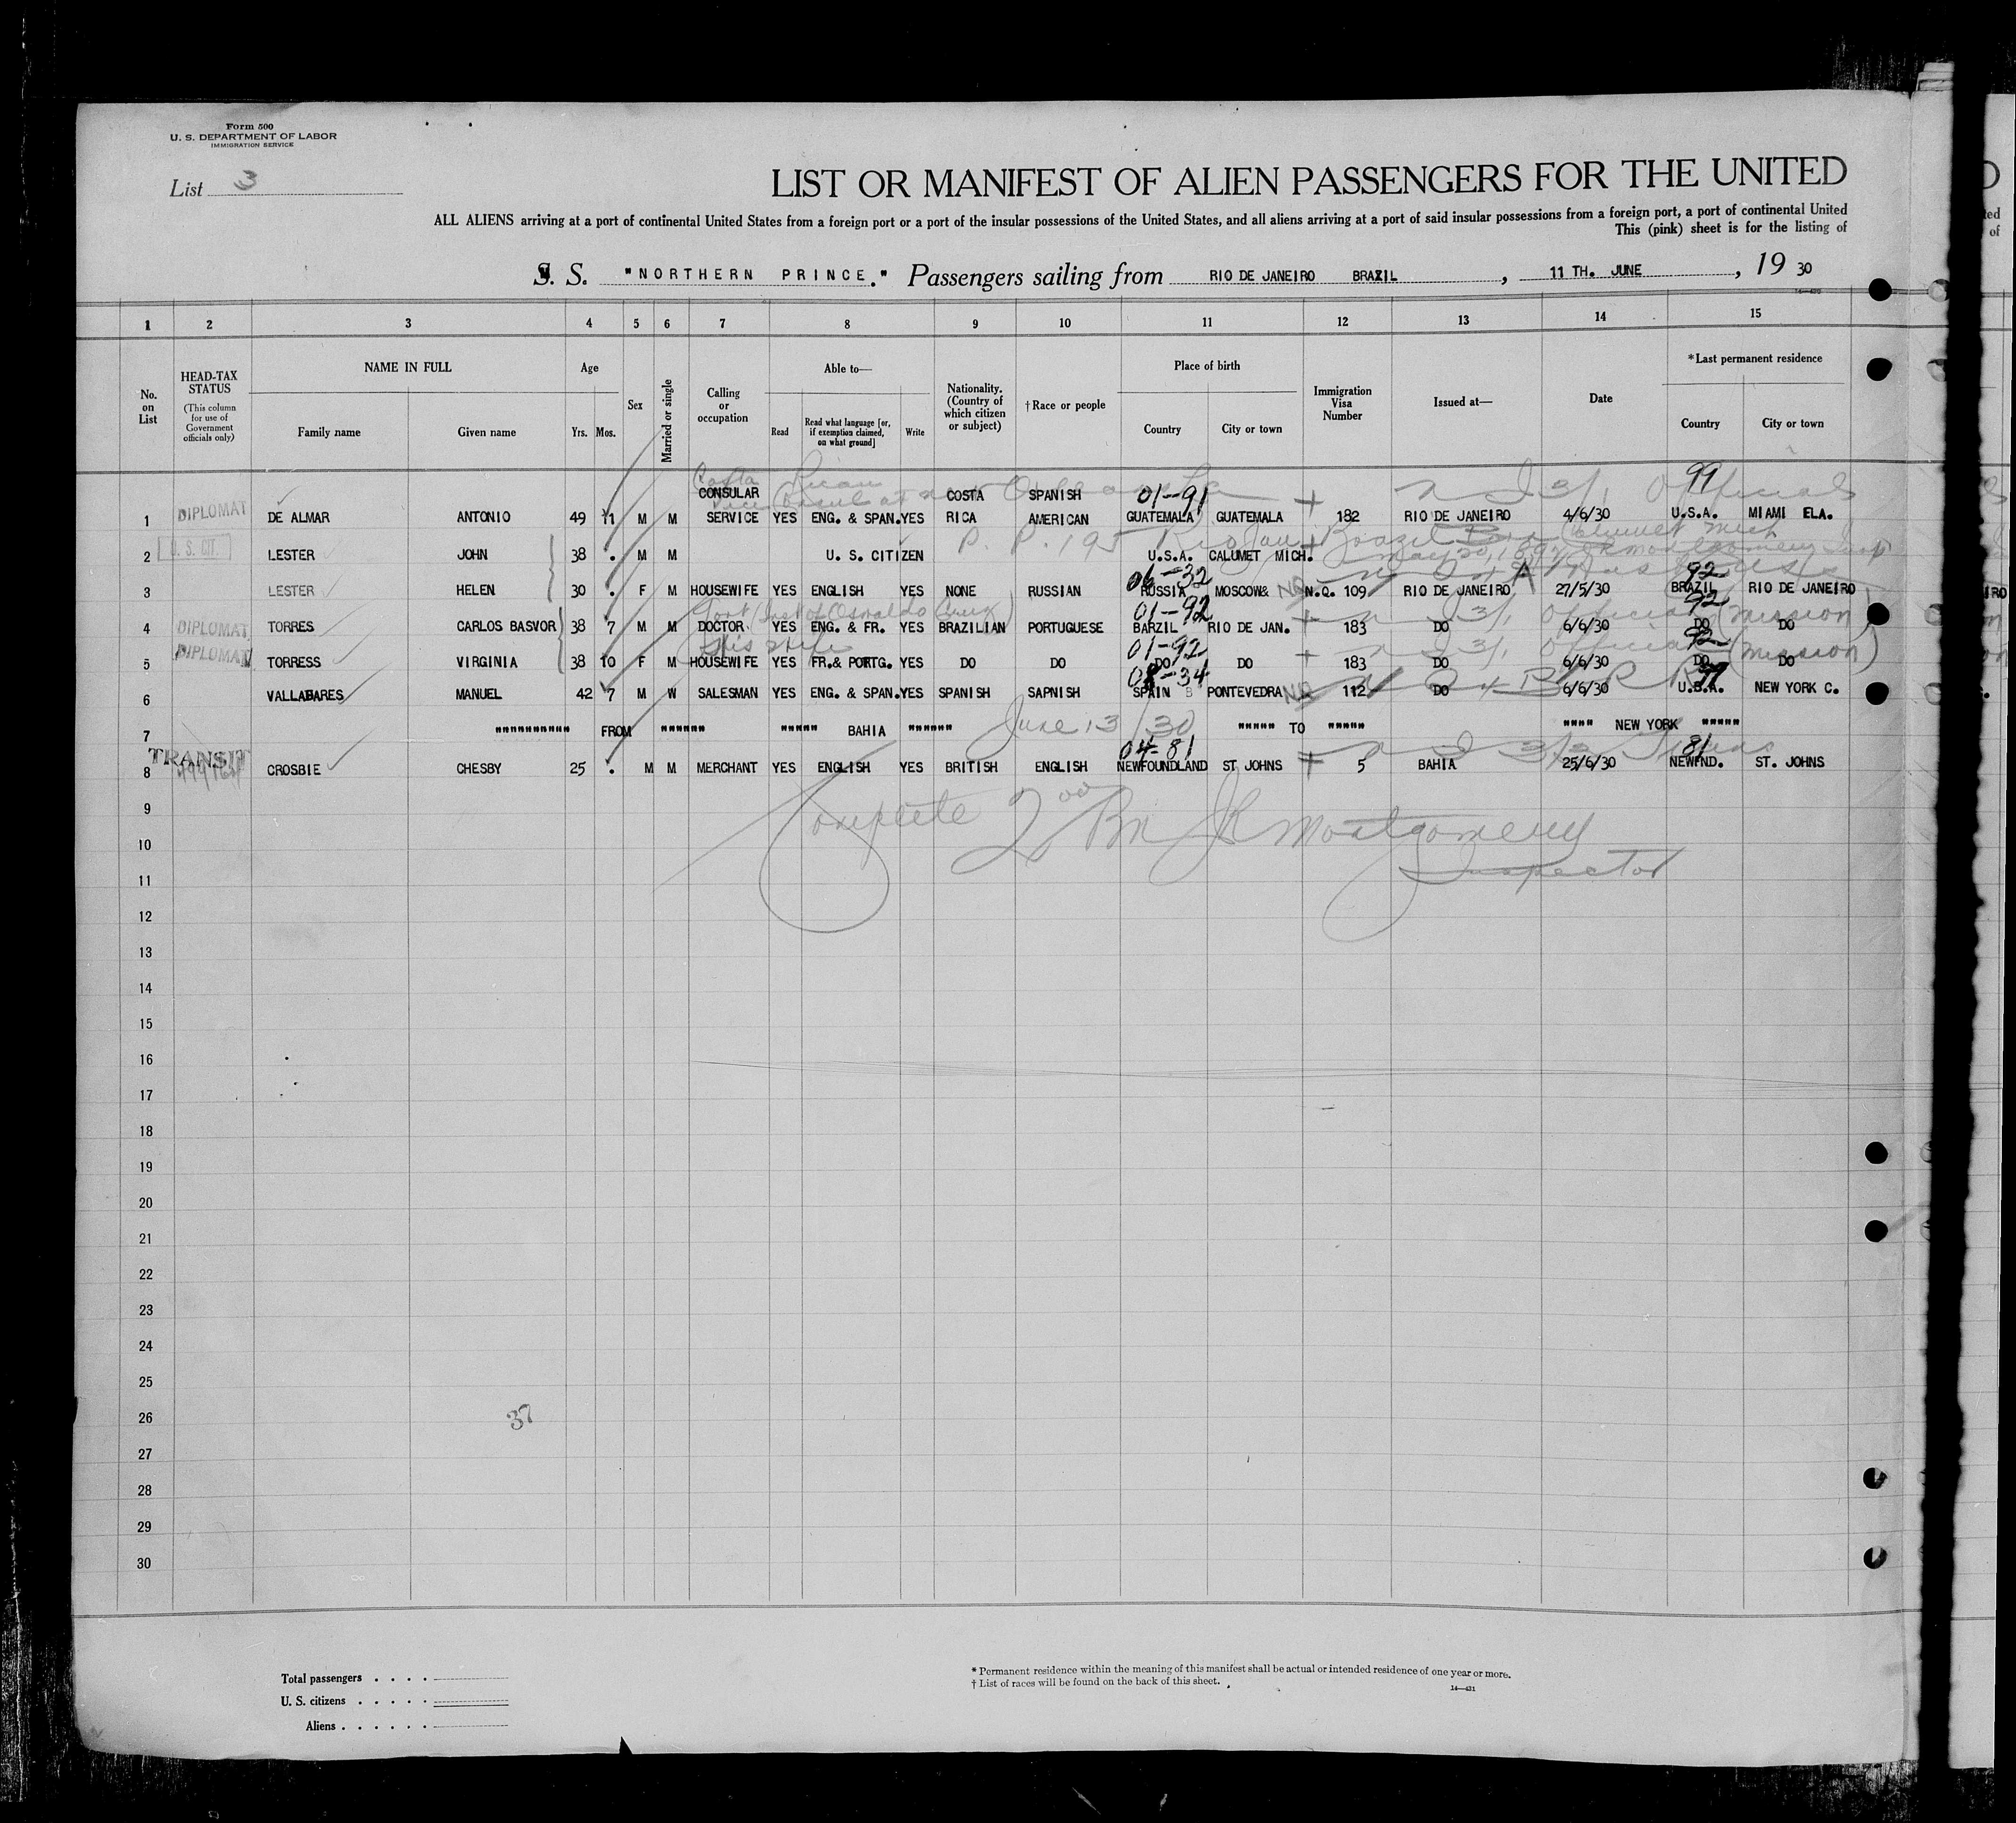 Form 500
U. S. DEPARTMENT OF LABOR
IMMIGRATION SERVICE
List 3
LIST OR MANIFEST OF ALIEN PASSENGERS FOR THE UNITED
ALL ALIENS arriving at a port of continental United States from a foreign port or a port of the insular possessions of the United States, and all aliens arriving at a port of said insular possessions from a foreign port, a port of continental United
This (pink) sheet is for the listing of
S. S. "NORTHERN PRINCE." Passengers sailing from RIO DE JANEIRO BRAZIL, 11 TH. JUNE, 19 30
1 2 3 4 5 6 7 8 9 10 11 12 13 14 15
No. on List
HEAD-TAX STATUS
(This column for use of Government officials only)
NAME IN FULL
Family name Given name
Age
Yrs. Mos.
Sex
Married or single
Calling or occupation
Able to—
Read
Read what language [or, if exemption claimed, on what ground]
Write
Nationality. (Country of which citizen or subject)
†Race or people
Place of birth
Country City or town
Immigration Visa Number
Issued at—
Date
*Last permanent residence
Country City or town
Costa Rican 99
Vice Consul at New Orleans La 01-91 Official
1 DIPLOMAT DE ALMAR ANTONIO 49 11 M M CONSULAR SERVICE YES ENG. & SPAN. YES COSTA RICA SPANISH AMERICAN GUATEMALA GUATEMALA 182 RIO DE JANEIRO 4/6/30 U.S.A. MIAMI ELA.
P. P. 195 Rio Jan Brazil Born Calumet Mich
2 U. S. CIT. LESTER JOHN 38 . M M U. S. CITIZEN U.S.A. CALUMET MICH.
May 20, 1892 JR Montgomery Insp
06-32 92
3 LESTER HELEN 30 . F M HOUSEWIFE YES ENGLISH YES NONE RUSSIAN RUSSIA MOSCOW& N.Q. 109 RIO DE JANEIRO 27/5/30 BRAZIL RIO DE JANEIRO
Inst of Oswaldo Cruz 01-92 3/1 Official (Mission) 92
4 DIPLOMAT TORRES CARLOS BASVOR 38 7 M M DOCTOR YES ENG. & FR. YES BRAZILIAN PORTUGUESE BARZIL RIO DE JAN. 183 DO 6/6/30 DO DO
His Wife 01-92 3/1 Official (Mission) 92
5 DIPLOMAT TORRESS VIRGINIA 38 10 F M HOUSEWIFE YES FR.& PORTG. YES DO DO DO DO 183 DO 6/6/30 DO DO
08-34
6 VALLADARES MANUEL 42 7 M W SALESMAN YES ENG. & SPAN. YES SPANISH SAPNISH SPAIN PONTEVEDRA 112 DO 6/6/30 U.S.A. NEW YORK C.
7 """""""""" FROM """""" """"" BAHIA """""" June 13/30 """"" TO """"" """" NEW YORK """""
04-81 81
8 TRANSIT CROSBIE CHESBY 25 . M M MERCHANT YES ENGLISH YES BRITISH ENGLISH NEWFOUNDLAND ST JOHNS 5 BAHIA 25/6/30 NEWFND. ST. JOHNS
9 Complete JR Montgomery
10
11 Inspector
12
13
14
15
16
17
18
19
20
21
22
23
24
25
26 37
27
28
29
30
Total passengers . . . .
U. S. citizens . . . . .
Aliens . . . . . .
* Permanent residence within the meaning of this manifest shall be actual or intended residence of one year or more.
† List of races will be found on the back of this sheet.
14—431